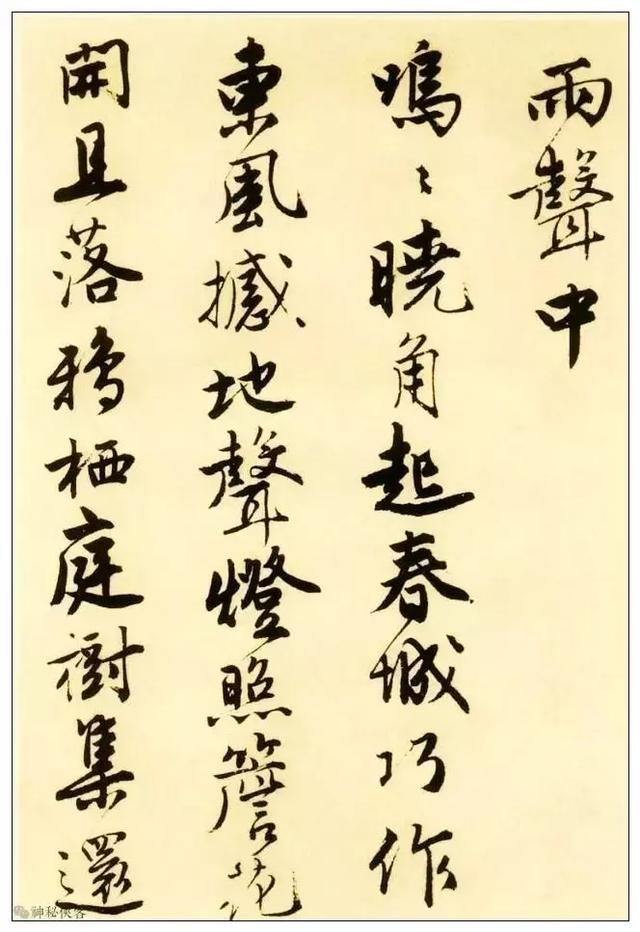 雨聲中
嗚〻曉角起春城巧作
東風撼地聲燈照簷花
開且落鴉栖庭樹集還
神秘俠客